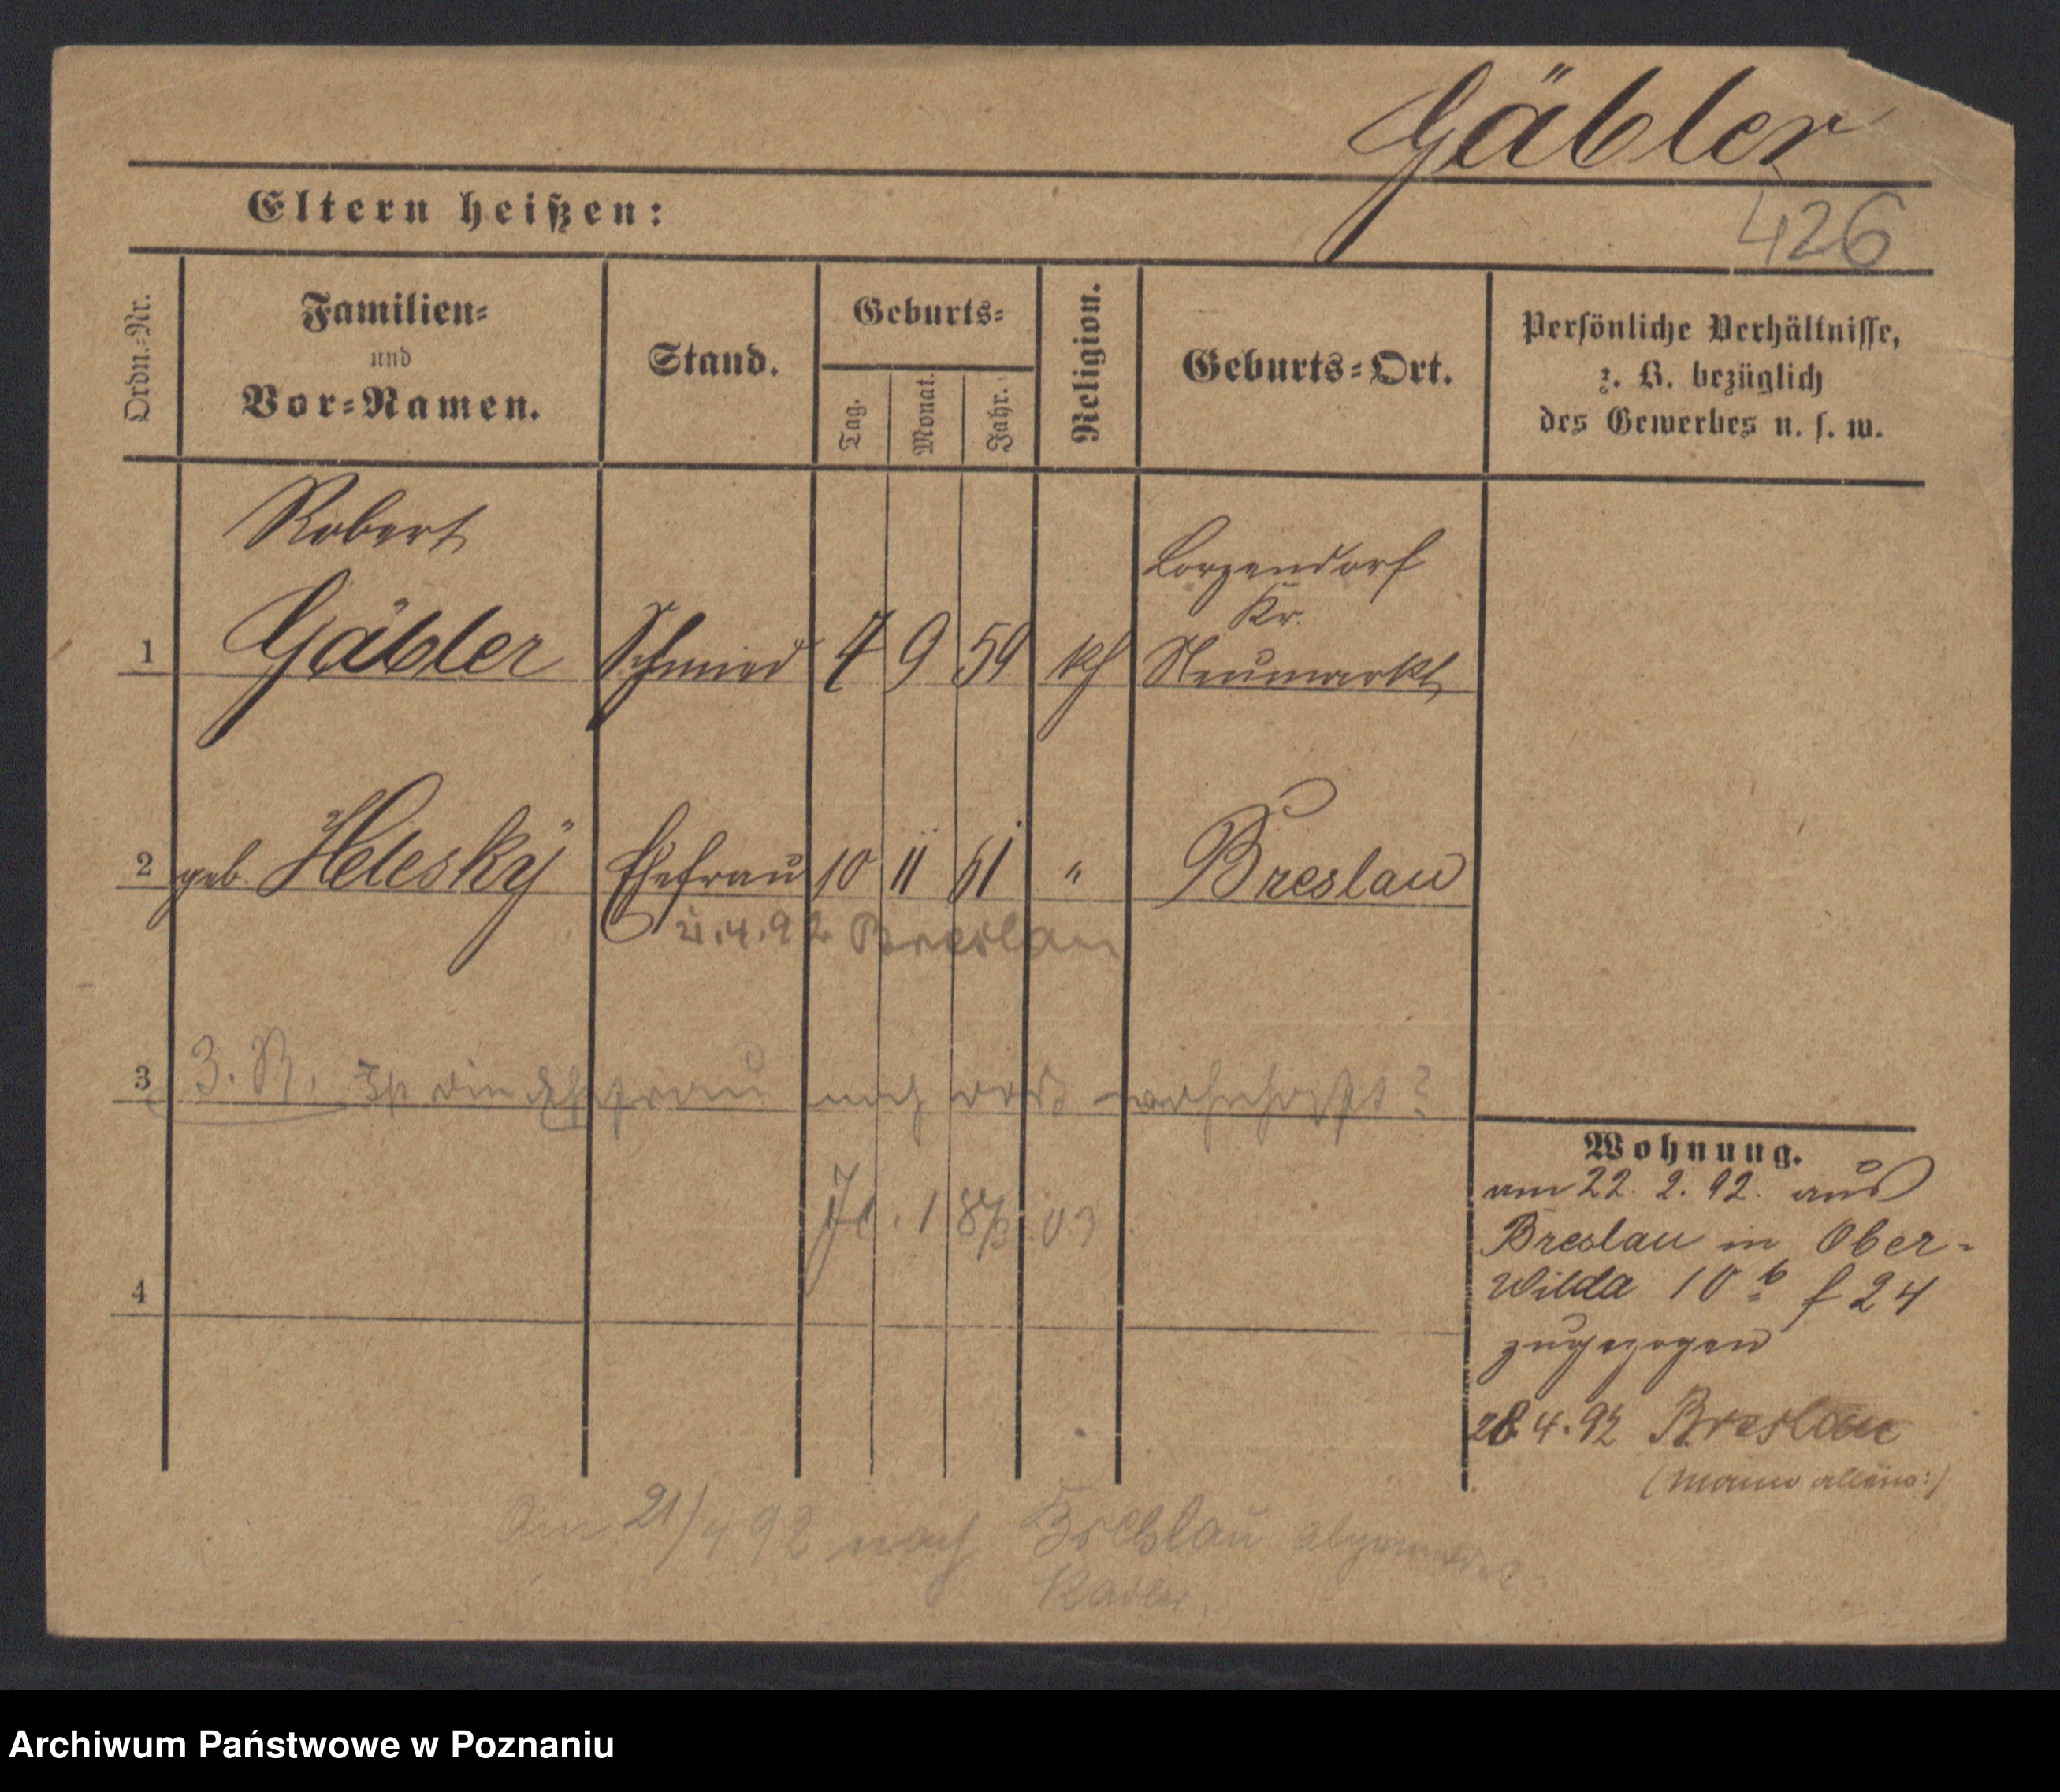 Gäbler
Eltern heißen:
426
Ordn.-Nr.
Familien-
und
Vor-Namen.
Stand.
Geburts-
Tag.
Monat.
Jahr.
Religion.
Geburts-Ort.
Persönliche Verhältnisse,
z. B. bezüglich
des Gewerbes u. s. w.
Robert
Lorzendorf
Kr.
1 Gäbler Schmied 7 9 59 kf Neumarkt
2 geb. Helesky Ehefrau 10 11 61 " Breslau
21.4.92 Breslau
3 3. R. Ist die Ehefrau noch dort wohnhaft?
Wohnung.
am 22. 2. 92. aus
Breslau in Ober-
Wilda 10 b f 24
zugezogen
4
28 4. 92 Breslau
(Mann allein:)
Am 21/4 92 nach Breslau